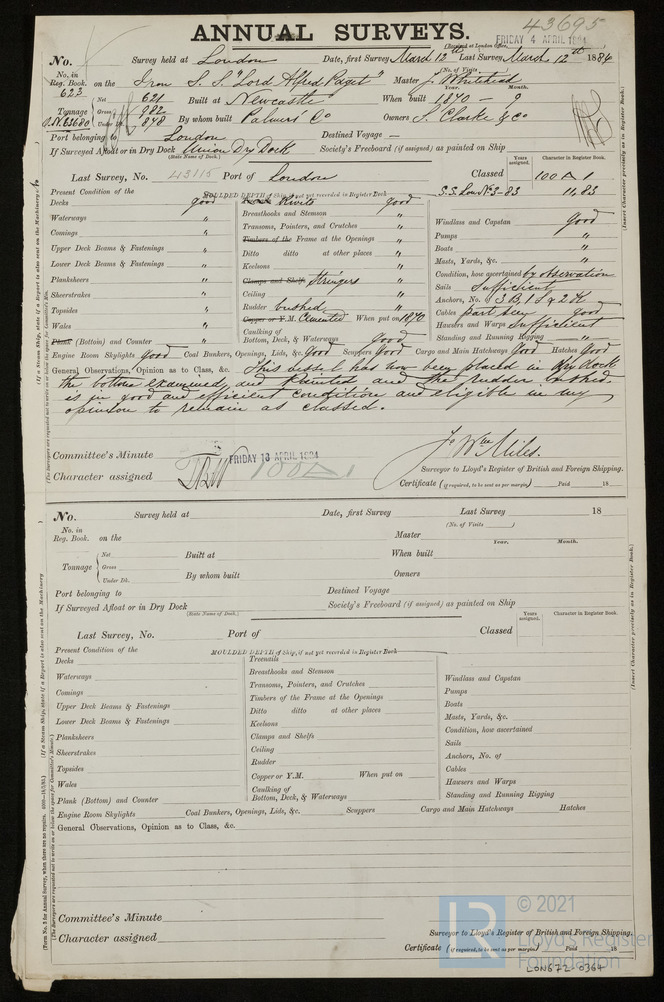 43695
ANNUAL SURVEYS.
(Received at London Office,
FRIDAY 4 APRIL 1884
No. Survey held at London Date, first Survey March 12th Last Survey March 12th 1884
(No. of Visits
No. in Reg. Book. on the Iron S. S. "Lord Alfred Paget" Master J. Whitehead
623
Year. Month.
Tonnage Net 621 Built at Newcastle When built 1870 - 9
Gross 982
O.N. 63680 Under Dk. 878 By whom built Palmers' Co Owners S. Clarke & Co
Port belonging to London Destined Voyage —
If Surveyed Afloat or in Dry Dock Union Dry Dock Society's Freeboard (if assigned) as painted on Ship
(State Name of Dock.)
Years assigned. Character in Register Book.
Last Survey, No. 43115 Port of London Classed 100 A 1
S.S. Lon No 3-83 11,83
Present Condition of the MOULDED DEPTH of Ship, if not yet recorded in Register Book
Decks good Rivets good
Waterways " Breasthooks and Stemson " Windlass and Capstan good
Comings " Transoms, Pointers, and Crutches " Pumps "
Upper Deck Beams & Fastenings " Timbers of the Frame at the Openings " Boats "
Lower Deck Beams & Fastenings " Ditto ditto at other places " Masts, Yards, &c. "
Planksheers " Keelsons " Condition, how ascertained by observation
Sheerstrakes " Clamps and Shelfs Stringers " Sails Sufficient
Topsides " Ceiling " Anchors, No. of 3 B, 1 S & 2 K
Wales " Rudder bushed " Cables part seen good
Plank (Bottom) and Counter " Copper or Y.M. Cemented When put on 1870 Hawsers and Warps Sufficient
Caulking of Bottom, Deck, & Waterways good Standing and Running Rigging "
Engine Room Skylights good Coal Bunkers, Openings, Lids, &c. good Scuppers good Cargo and Main Hatchways good Hatches good
General Observations, Opinion as to Class, &c. This vessel has now been placed in Dry Dock
the bottom examined and painted and the rudder bushed.
is in good and efficient condition and eligible in my
opinion to remain as classed.
Committee's Minute FRIDAY 18 APRIL 1884
Character assigned 100 A 1
Jo Wm Miles.
Surveyor to Lloyd's Register of British and Foreign Shipping.
Certificate (if required, to be sent as per margin) Paid 18
No. Survey held at Date, first Survey Last Survey 18
(No. of Visits )
No. in Reg. Book. on the Master
Year. Month.
Tonnage Net Built at When built
Gross
Under Dk. By whom built Owners
Port belonging to Destined Voyage
If Surveyed Afloat or in Dry Dock Society's Freeboard (if assigned) as painted on Ship
(State Name of Dock.)
Years assigned. Character in Register Book.
Last Survey, No. Port of Classed
Present Condition of the MOULDED DEPTH of Ship, if not yet recorded in Register Book
Decks Treenails
Waterways Breasthooks and Stemson Windlass and Capstan
Comings Transoms, Pointers, and Crutches Pumps
Upper Deck Beams & Fastenings Timbers of the Frame at the Openings Boats
Lower Deck Beams & Fastenings Ditto ditto at other places Masts, Yards, &c.
Planksheers Keelsons Condition, how ascertained
Sheerstrakes Clamps and Shelfs Sails
Topsides Ceiling Anchors, No. of
Wales Rudder Cables
Plank (Bottom) and Counter Copper or Y.M. When put on Hawsers and Warps
Caulking of Bottom, Deck, & Waterways Standing and Running Rigging
Engine Room Skylights Coal Bunkers, Openings, Lids, &c. Scuppers Cargo and Main Hatchways Hatches
General Observations, Opinion as to Class, &c.
Committee's Minute
Character assigned
Surveyor to Lloyd's Register of British and Foreign Shipping.
Certificate (if required, to be sent as per margin) Paid 18
LR © 2021
Lloyd's Register
Foundation
LON672-0364
(Insert Character precisely as in Register Book.)
(Insert Character precisely as in Register Book.)